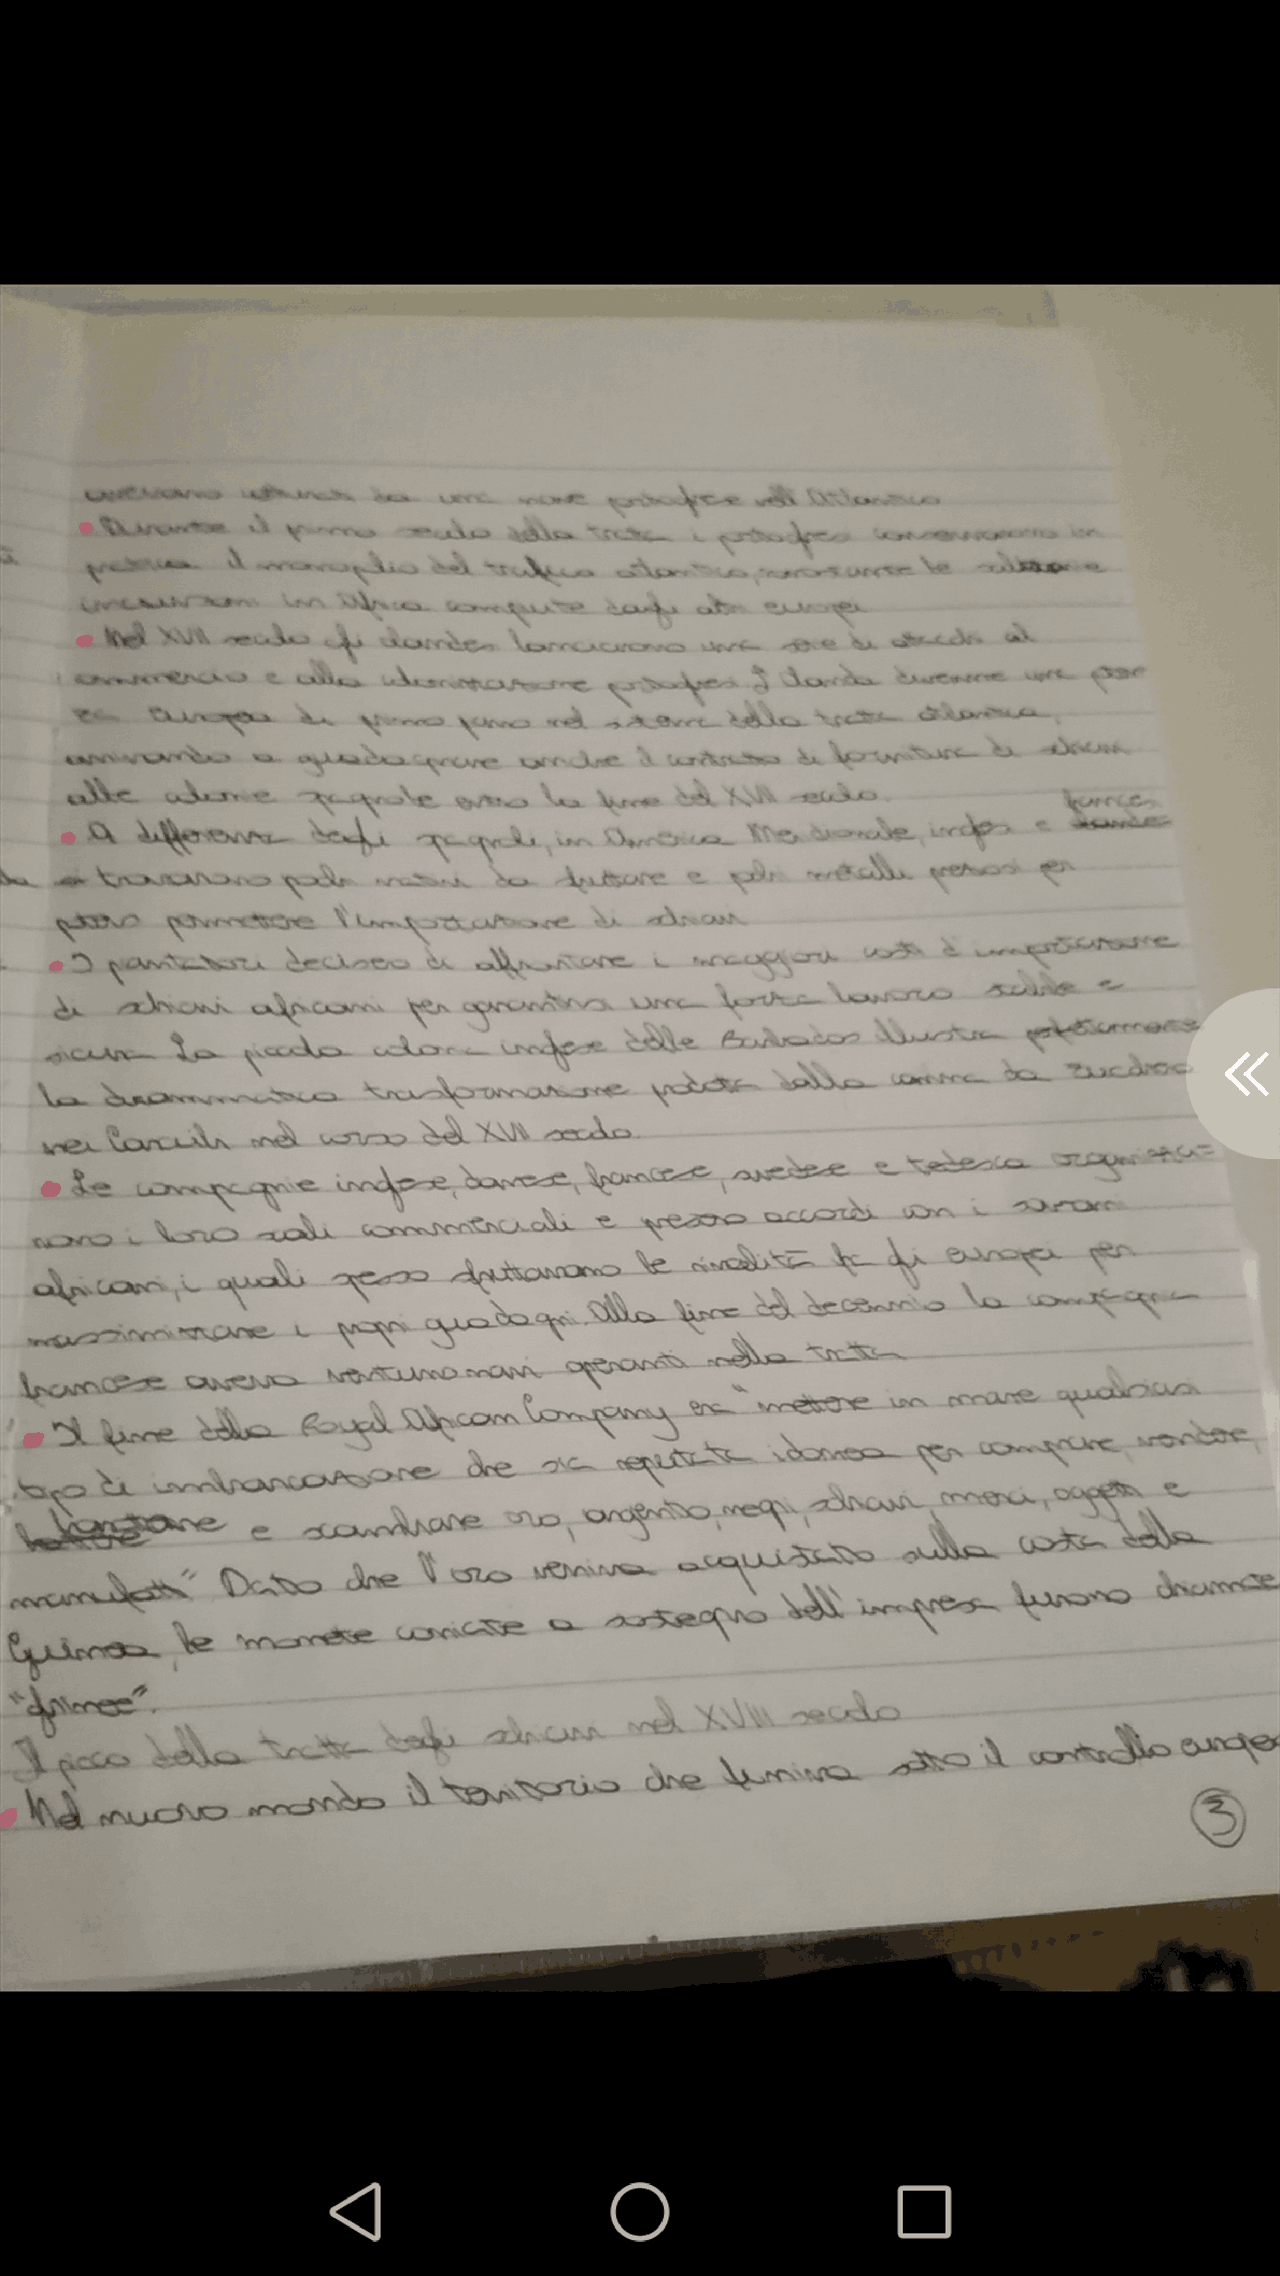 da una nave portoghese nell'Atlantico
Durante il primo secolo della tratta i portoghesi conservarono in
pratica il monopolio del traffico atlantico, nonostante le
incursioni in Africa compiute dagli altri europei
Nel XVII secolo gli olandesi lanciarono una serie di attacchi al
commercio e alla portoghesi. L'Olanda divenne una poten
za europea di primo piano nel sistema della tratta atlantica,
arrivando a guadagnare anche il contratto di fornitura di schiavi
alle colonie spagnole verso la fine del XVII secolo.
A differenza degli spagnoli, in America Meridionale, inglesi e francesi
trovarono pochi nativi da sfruttare e pochi metalli preziosi per
permettere l'importazione di schiavi
I piantatori decisero di affrontare i maggiori costi d'importazione
di schiavi africani per garantirsi una forza lavoro stabile e
sicura. La piccola colonia inglese delle Barbados illustra perfettamente
la drammatica trasformazione portata dalla canna da zucchero
nei Caraibi nel corso del XVII secolo.
Le compagnie inglese, danese, francese, svedese e tedesca organizza=
rono i loro scali commerciali e presero accordi con i sovrani
africani, i quali spesso sfruttavano le rivalità fra gli europei per
massimizzare i propri guadagni. Alla fine del decennio la compagnia
francese aveva ventuno navi operanti nella tratta
Il fine della Royal African Company era "mettere in mare qualsiasi
tipo di imbarcazione che sia reputata idonea per comprare, vendere,
barattare e scambiare oro, argento, negri, schiavi, merci, oggetti e
manufatti" Dato che l'oro veniva acquistato sulla costa della
Guinea, le monete coniate a sostegno dell'impresa furono chiamate
"ghinee".
Il picco della tratta degli schiavi nel XVIII secolo
Nel nuovo mondo il territorio che finiva sotto il controllo europeo
3